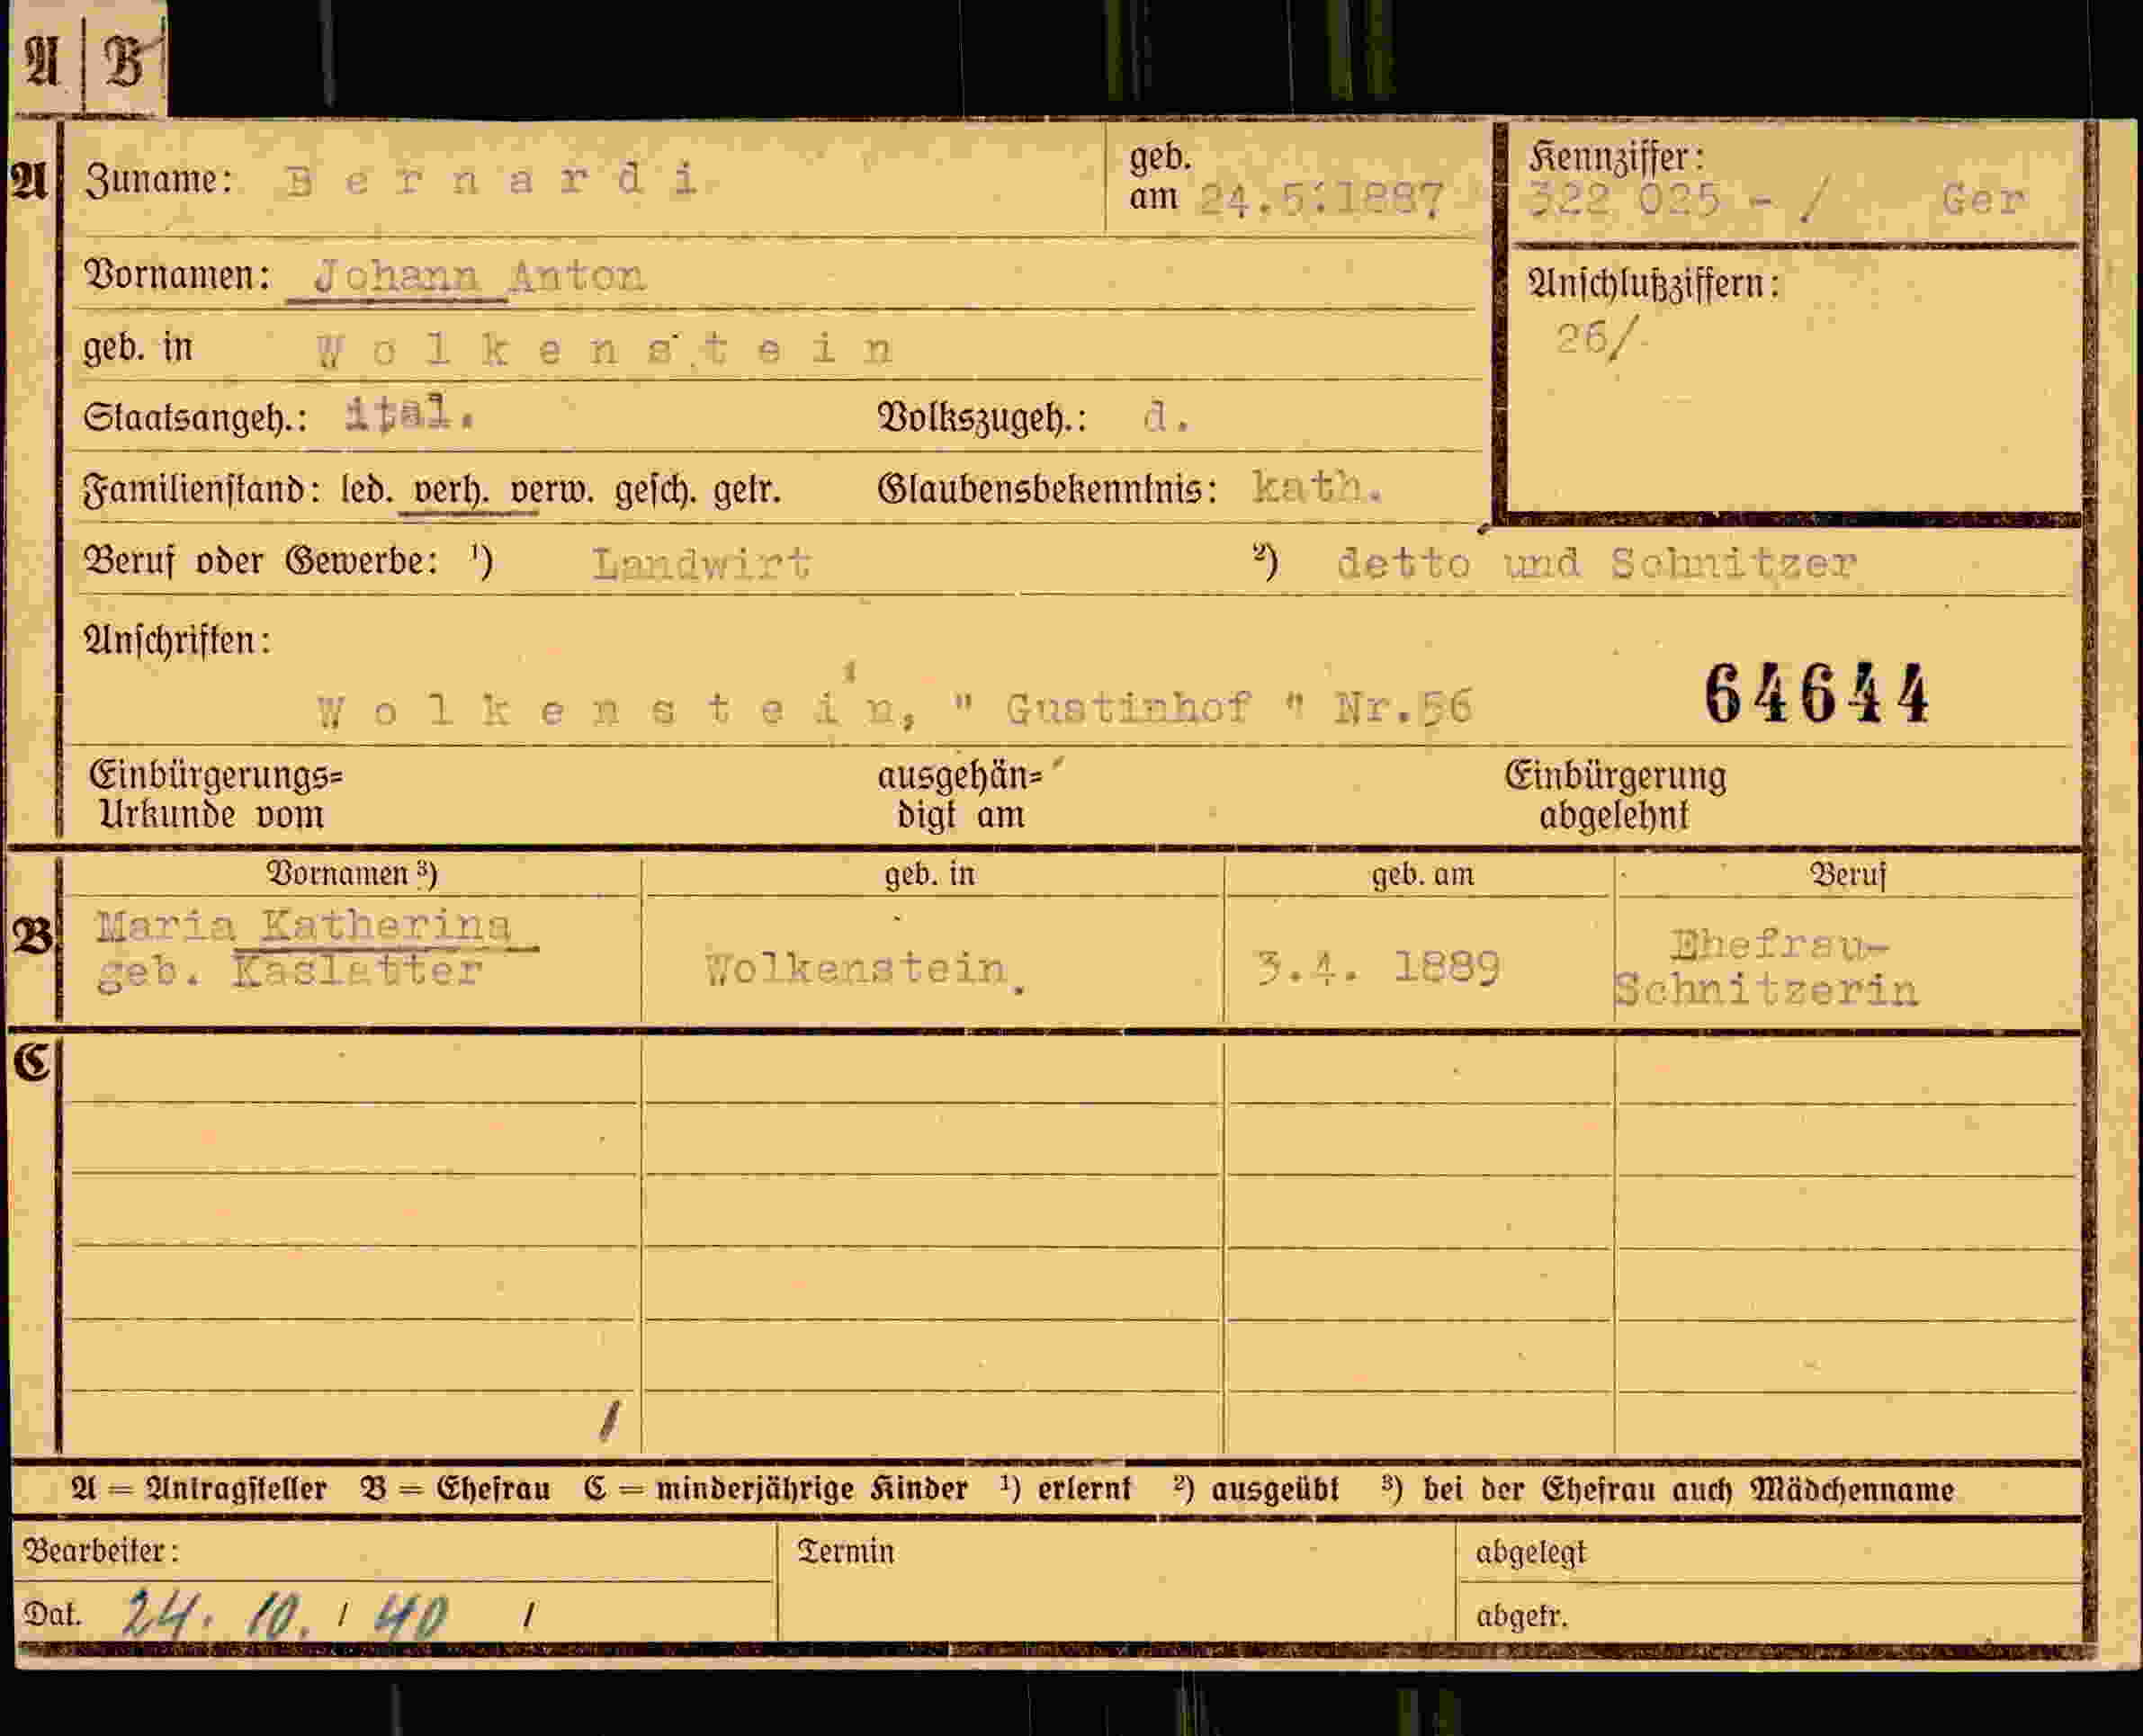 A | B
A Zuname: Bernardi geb. am 24.5.1887 Kennziffer: 322 025 - / Ger
Vornamen: Johann Anton Anschlußziffern:
geb. in Wolkenstein 26/
Staatsangeh.: ital. Volkszugeh.: d.
Familienstand: led. verh. verw. gesch. getr. Glaubensbekenntnis: kath.
Beruf oder Gewerbe: ¹) Landwirt ²) detto und Schnitzer
Anschriften:
Wolkenstein, " Gustinhof " Nr.56 64644
Einbürgerungs= ausgehän= Einbürgerung
Urkunde vom digt am abgelehnt
Vornamen ³) geb. in geb. am Beruf
B Maria Katherina Wolkenstein. 3.4. 1889 Ehefrau-
geb. Kaslatter Schnitzerin
C
A = Antragsteller B = Ehefrau C = minderjährige Kinder ¹) erlernt ²) ausgeübt ³) bei der Ehefrau auch Mädchenname
Bearbeiter: Termin abgelegt
Dat. 24. 10. / 40 / abgetr.